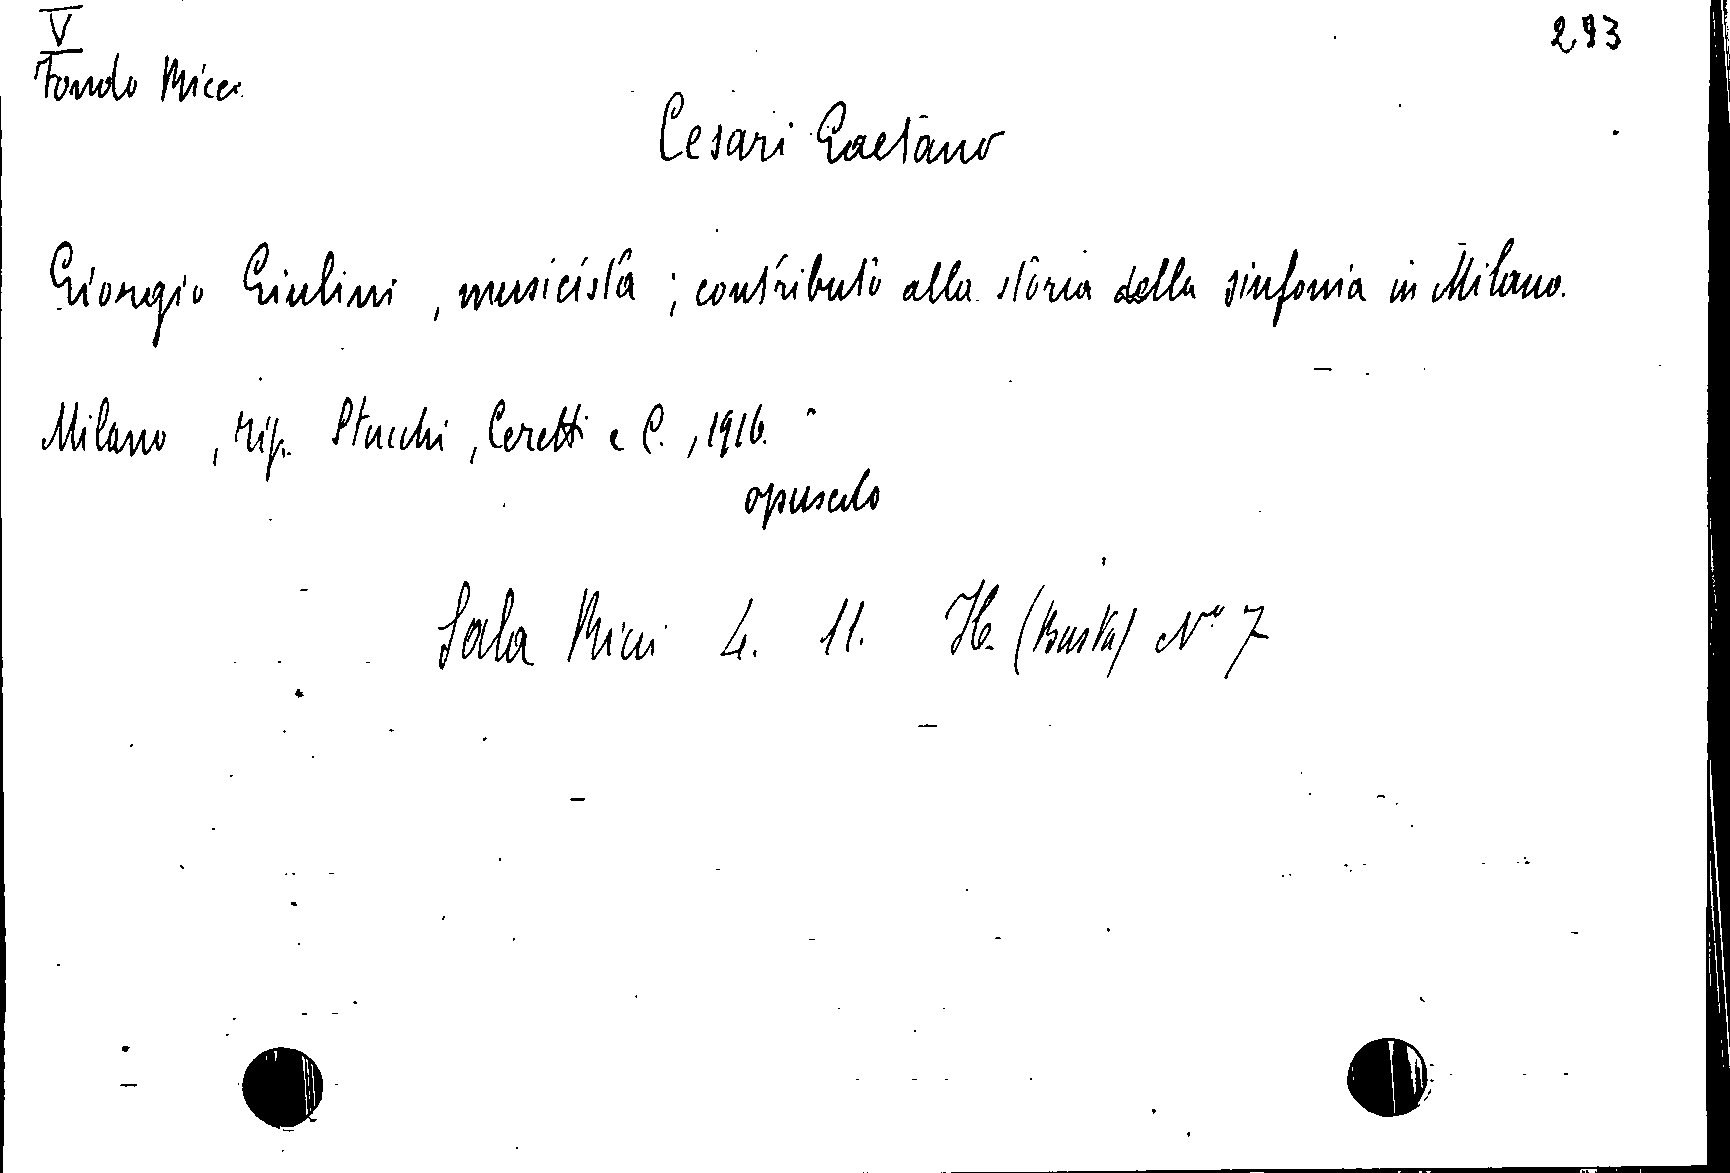 V
293
Fondo Ricci
Cesari Gaetano
Giorgio Giulini, musicista; contributo alla storia della sinfonia in Milano.
Milano, tip. Stucchi, Ceretti e C., 1916.
opuscolo
Sala Ricci 4. 11. H. (Busta) Nº 7